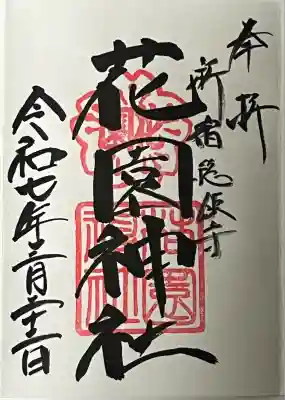 奉拝
新宿総鎮守
花園神社
令和七年二月二十一日